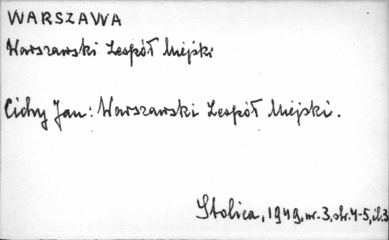 WARSZAWA
Warszawski Zespół Miejski
Cichy Jan: Warszawski Zespół Miejski.
Stolica, 1949, nr. 3, str. 4-5, il. 3